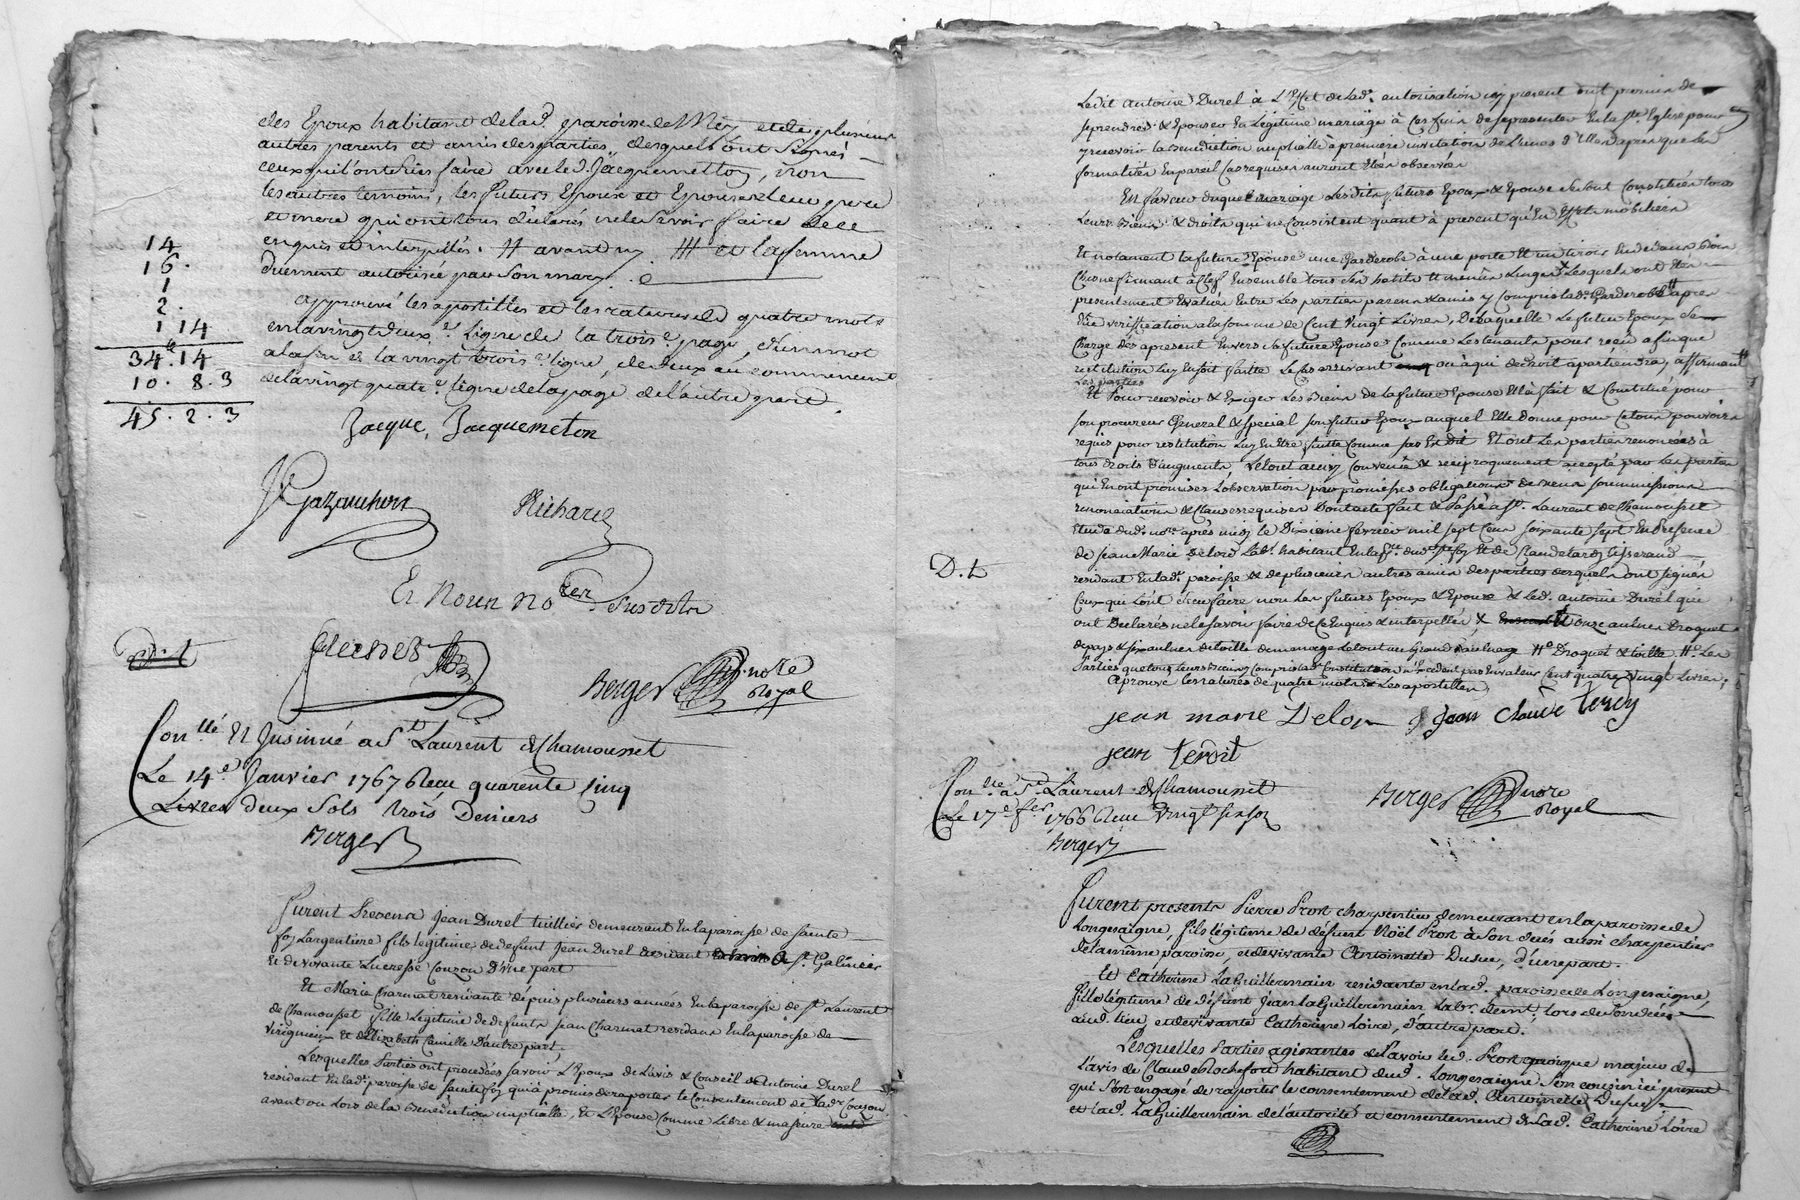 des Epoux habitant de lad. paroisse de Mey et de plusieurs
autres parents et amis des parties, desquels ont signés
ceux qui l'ont sçu faire avec led. Jacquemetton, non
les autres temoins, les futurs Epoux et Epouse leur pere
et mere qui ont tous declarés ne le sçavoir faire de ce
enquis et interpellés. # avant my ### et la femme
duement autorisée par son mary.
approuvé les apostilles et les ratures de quatre mots
en la vingt deux.e ligne de la trois.e page, d'un mot
a la fin de la vingt trois.e ligne, de deux au commencement
de la vingt quatr.e ligne de la page de l'autre part.
14
16.
1
2.
1 14
34.14
10. 8. 3
45. 2. 3
Jacque, Jacquemeton
Richard
Et Nous no.res Susd.ts
D.t
Berger nore
Royal
Con.llé Et Jnsinué a S.t Laurent de Chamousset
Le 14.e Janvier 1767 Reçu quarente Cinq
Livres deux Sols trois Deniers
Berger
Furent Presens Jean Durel tuillier demeurant En la paroisse de Sainte
foy Largentiere fils legitime de defunt Jean Durel residant a S.t Galmier
Et de vivante Lucresse Couzon D'une part
Et Marie Charmat residante depuis plusieurs années En la paroisse de S.t Laurent
de Chamousset fille Legitime de defunts Jean Charmat residant En la paroisse de
Virigneux Et d'Elizabeth Camille D'autre part.
Lesquelles Parties ont procedées sçavoir L'Epoux de L'avis & Conseil de Antoine Durel
residant En lad. paroisse de Sainte foy qui a promis de raporter le Consentement de lad.e Couzon
avant ou Lors de la Benediction nuptialle, Et L'Epouse Comme Libre & majeure
Ledit Antoine Durel à L'effet de lad. autorisation icy present ont promis de
se prendre & Epouser En Legitime mariage à ces fins de se presenter En la S.te Eglise pour
y recevoir la Benediction nuptialle à premiere invitation de L'un d'Eux apres que les
formalités En pareil Cas requises auront Etés observées
En faveur duquel mariage Lesdits futurs Epoux & Epouse se sont Constitués tous
Leurs Biens & droits qui ne Consistent quant à present qu'En Effets mobiliers
Et notament la future Epouse une garderobe à une porte Et un tiroir En dedans bois
Chesne firmant à Clef Ensemble tous ses habits Et menus Linges Lesquels ont Eté
presentement Evalués Entre Les parties parens & amis y Compris lad. Garderobe # apres
düe verification a la somme de Cent Vingt Livres, De laquelle Le futur Epoux se
Charge des apresent Envers la future Epouse Comme Les tenants pour reçu afin que
restitution luy En soit faitte Le Cas arrivant ou à qui de droit apartiendra, affirmant
Les parties
Et Pour recevoir & Exiger Les Biens de la future Epouse Elle à fait & Constitué pour
son procureur General & special son futur Epoux auquel Elle donne pour Ce tous pouvoirs
requis pour restitution Luy En Etre faitte Comme jas Est dit Et ont Les parties renoncées à
tous droits D'augments, Le tout ainsy Convenu & reciproquement accepté par Les parties
qui En ont promises L'observation par promesses obligations de Biens soummissions
renonciations & Clauses requises Dont acte fait & Passé a S.t Laurent de Chamousset
Etude dud. no.re après midy le Dixieme fevrier mil sept Cens Soixante sept En Presence
de Jean Marie Delor Lab.r habitant En la p.sse dud. S.te foy Et de Claude terdy tisserand
residant En lad. paroisse & de plusieurs autres amis des parties desquels ont signés
Ceux qui L'ont sçeu faire non Les futurs Epoux & Epouse & Led. Antoine Durel qui
ont Declarés ne le savoir faire de Ce Enquis & interpellés X Et onze aulnes Droguet
de pays & six aulnes de toille
D.t
Parties que tous leurs Biens y Compris lad. Constitution n'Excedent pas En valeur Cent quatre Vingt Livres,
Aprouvé les ratures de quatre mots & Les apostilles
jean marie Delor Jean Claude terdy
jean teroit
Con.llé a S.t Laurent de Chamousset
Le 17.e fe.r 1766 Reçu Vingt six sols
Berger
Berger nore
Royal
Furent presents Pierre Prost charpentier demeurant en la paroisse de
Longesaigne, fils légitime de défunt Noël Prost à son decés aussi charpentier
de la même paroisse, et de vivante Antoinette Dusuc, d'une part.
Et Catherine LaGuillermain residante en lad. paroisse de Longesaigne,
fille légitime de défunt Jean LaGuillermain Lab.r dem.t lors de son decés
aud. lieu, et de vivante Catherine Loire, d'autre part.
Lesquelles Parties agissantes sçavoir led. Prost quoique majeur de
l'avis de Claude Rochefort habitant dud. Longesaigne son cousin ici present
qui s'est engagé de raporter le consentement de lad. Antoinette Dusuc,
et lad. LaGuillermain de l'autorité et consentement de lad. Catherine Loire